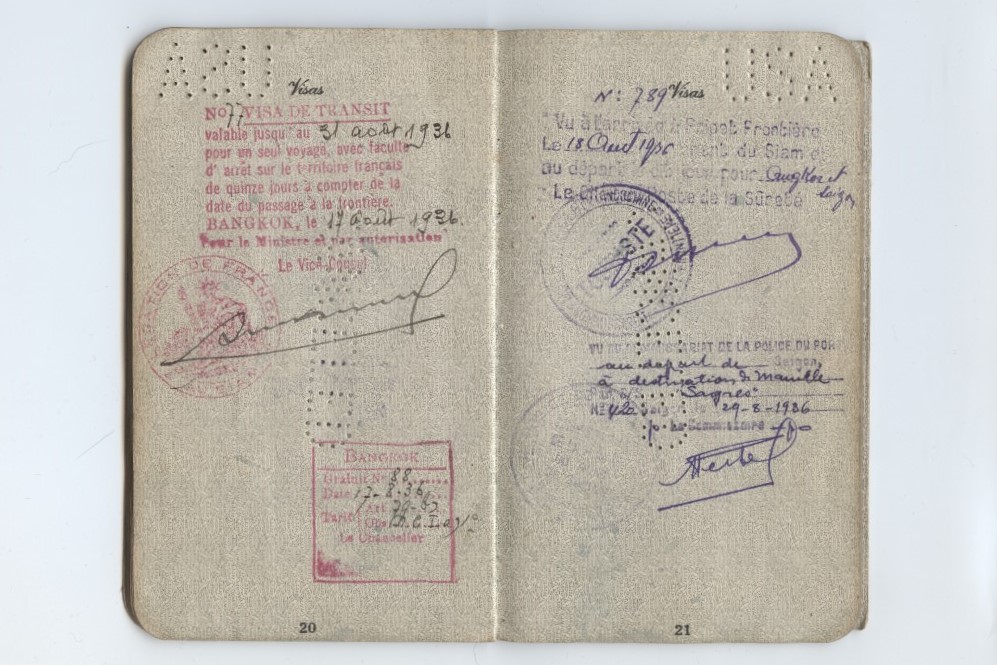 Visas
No 77 VISA DE TRANSIT
valable jusqu'au 31 août 1936
pour un seul voyage, avec faculté
d'arrêt sur le territoire français
de quinze jours à compter de la
date du passage à la frontière.
BANGKOK, le 17 août 1936.
Pour le Ministre et par autorisation
Le Vice-Consul
LEGATION DE FRANCE
BANGKOK
Gratuit No 88
Date 17-8-36
Tarif Art
Le Chancelier
20
USA
Visas
N: 789
Vu à l'arrivée Frontière
Le 18 Aout 1936 du Siam et
au départ jour pour Angkor et
Saigon
Le de la Sûreté
VU AU COMMISSARIAT DE LA POLICE DU PORT
au départ de Saigon
à destination de Manille
"Sagres"
No 420 29-8-1936
p. Le Commissaire
21